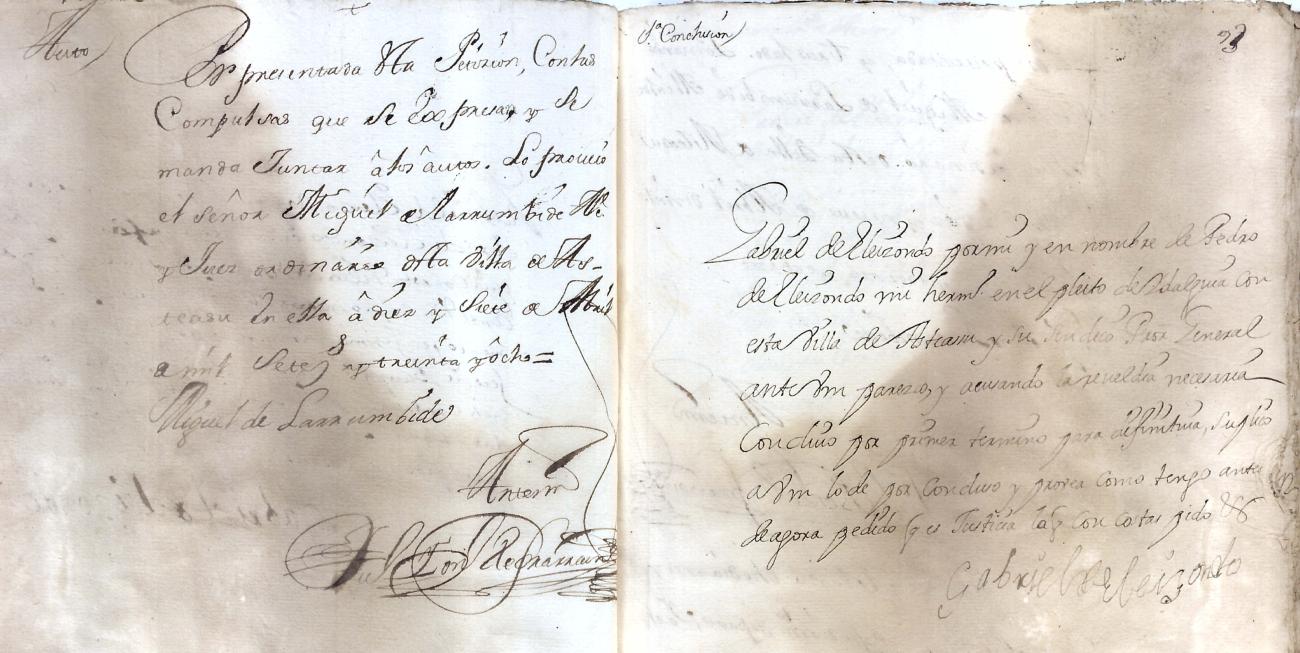 Auto
Por presentada esta Petizion, Con las
Compulsas que se Expresan, y se
manda Juntar â los âutos. Lo proveio
el señor Miguel de Larrumbide Alc.
y Juez ordinario desta Villa de As-
teasu en ella â diez y siete de Abril
de mil Setez.s y treinta y ocho=
Miguel de Larrumbide
Antemi
1.a Conclusion
Gabriel de Eleizondo por mi y en nombre de Pedro
de Eleizondo mi herm.o en el pleito de Idalguia con
esta Villa de Asteasu y su sindico Pror General
ante Vm parezco, y acusando la reveldia necesaria
Concluio por primer termino para definitiva, suplico
a Vm lo de por Concluso y provea como tengo antes
de agora pedido q es Justicia la q Con costas pido &
Gabriel de eleizondo